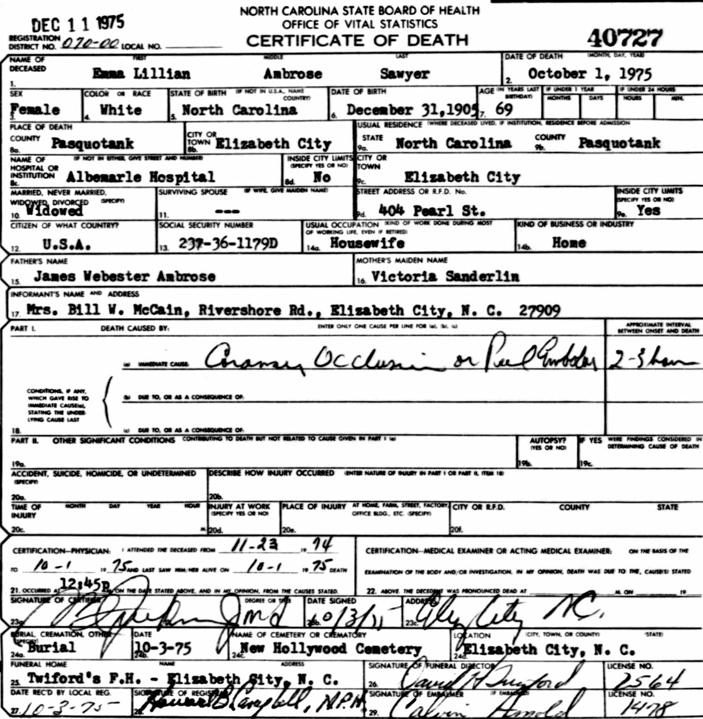 NORTH CAROLINA STATE BOARD OF HEALTH
OFFICE OF VITAL STATISTICS
DEC 11 1975
CERTIFICATE OF DEATH 40727
REGISTRATION DISTRICT NO. 070-00 LOCAL NO.
NAME OF DECEASED FIRST MIDDLE LAST DATE OF DEATH (MONTH, DAY, YEAR)
1. Emma Lillian Ambrose Sawyer 2. October 1, 1975
SEX COLOR OR RACE STATE OF BIRTH (IF NOT IN U.S.A., NAME COUNTRY) DATE OF BIRTH AGE (IN YEARS LAST BIRTHDAY) IF UNDER 1 YEAR MONTHS DAYS IF UNDER 24 HOURS HOURS MIN.
3. Female 4. White 5. North Carolina 6. December 31,1905 7. 69
PLACE OF DEATH USUAL RESIDENCE (WHERE DECEASED LIVED, IF INSTITUTION, RESIDENCE BEFORE ADMISSION
COUNTY CITY OR TOWN STATE COUNTY
8a. Pasquotank 8b. Elizabeth City 9a. North Carolina 9b. Pasquotank
NAME OF HOSPITAL OR INSTITUTION (IF NOT IN EITHER, GIVE STREET AND NUMBER) INSIDE CITY LIMITS (SPECIFY YES OR NO) CITY OR TOWN
8c. Albemarle Hospital 8d. No 9c. Elizabeth City
MARRIED, NEVER MARRIED, WIDOWED, DIVORCED (SPECIFY) SURVIVING SPOUSE (IF WIFE, GIVE MAIDEN NAME) STREET ADDRESS OR R.F.D. No. INSIDE CITY LIMITS (SPECIFY YES OR NO)
10. Widowed 11. --- 9d. 404 Pearl St. 9e. Yes
CITIZEN OF WHAT COUNTRY? SOCIAL SECURITY NUMBER USUAL OCCUPATION (KIND OF WORK DONE DURING MOST OF WORKING LIFE, EVEN IF RETIRED) KIND OF BUSINESS OR INDUSTRY
12. U.S.A. 13. 237-36-1179D 14a. Housewife 14b. Home
FATHER'S NAME MOTHER'S MAIDEN NAME
15. James Webester Ambrose 16. Victoria Sanderlin
INFORMANT'S NAME AND ADDRESS
17. Mrs. Bill W. McCain, Rivershore Rd., Elizabeth City, N. C. 27909
PART I. DEATH CAUSED BY: ENTER ONLY ONE CAUSE PER LINE FOR (a), (b), (c) APPROXIMATE INTERVAL BETWEEN ONSET AND DEATH
(a) IMMEDIATE CAUSE Coronary Occlusion or Pul Embolus 2-3 hours
CONDITIONS, IF ANY, WHICH GAVE RISE TO IMMEDIATE CAUSE(a), STATING THE UNDERLYING CAUSE LAST
(b) DUE TO, OR AS A CONSEQUENCE OF:
18. (c) DUE TO, OR AS A CONSEQUENCE OF:
PART II. OTHER SIGNIFICANT CONDITIONS CONTRIBUTING TO DEATH BUT NOT RELATED TO CAUSE GIVEN IN PART I (a) AUTOPSY? (YES OR NO) IF YES WERE FINDINGS CONSIDERED IN DETERMINING CAUSE OF DEATH
19a. 19b. 19c.
ACCIDENT, SUICIDE, HOMICIDE, OR UNDETERMINED (SPECIFY) DESCRIBE HOW INJURY OCCURRED (ENTER NATURE OF INJURY IN PART I OR PART II, ITEM 18)
20a. 20b.
TIME OF INJURY MONTH DAY YEAR HOUR INJURY AT WORK (SPECIFY YES OR NO) PLACE OF INJURY AT HOME, FARM, STREET, FACTORY, OFFICE BLDG., ETC. (SPECIFY) CITY OR R.F.D. COUNTY STATE
20c. M. 20d. 20e. 20f.
CERTIFICATION—PHYSICIAN: I ATTENDED THE DECEASED FROM 11-23 19 74 CERTIFICATION—MEDICAL EXAMINER OR ACTING MEDICAL EXAMINER: ON THE BASIS OF THE
TO 10-1 19 75 AND LAST SAW HIM/HER ALIVE ON 10-1 19 75 DEATH EXAMINATION OF THE BODY AND/OR INVESTIGATION, IN MY OPINION, DEATH WAS DUE TO THE, CAUSE(S) STATED
21. OCCURRED AT 12:45p ON THE DATE STATED ABOVE, AND IN MY OPINION, FROM THE CAUSES STATED 22. ABOVE. THE DECEDENT WAS PRONOUNCED DEAD AT M. ON 19
SIGNATURE OF CERTIFIER DEGREE OR TITLE DATE SIGNED ADDRESS
23a. MD 23b. 10/3/75 23c. Eliz City NC.
BURIAL, CREMATION, OTHER (SPECIFY) DATE NAME OF CEMETERY OR CREMATORY LOCATION (CITY, TOWN, OR COUNTY) (STATE)
24a. Burial 24b. 10-3-75 24c. New Hollywood Cemetery 24d. Elizabeth City, N. C.
FUNERAL HOME NAME ADDRESS SIGNATURE OF FUNERAL DIRECTOR LICENSE NO.
25. Twiford's F.H. - Elizabeth City, N. C. 26. David H Twiford 2564
DATE REC'D BY LOCAL REG. SIGNATURE OF REGISTRAR SIGNATURE OF EMBALMER LICENSE NO.
27. 10-3-75 28. Howard B Campbell, M.P.H 29. Calvin Arnold 1478